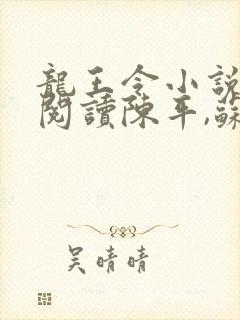 龍王令小說
閱讀陳平,蘇
吳晴晴